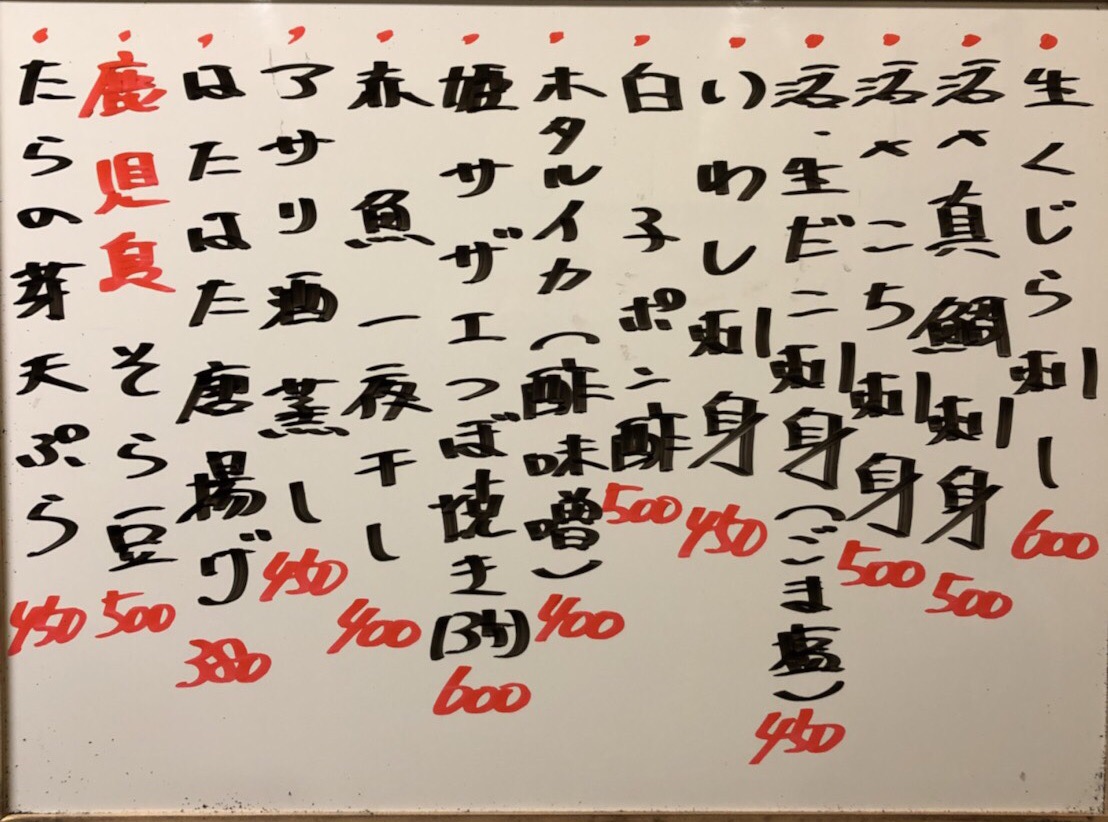 ・生くじら刺し 600
・活〆真鯛刺身 500
・活〆こち刺身 500
・活・生だこ刺身(ごま塩) 450
・いわし刺身 450
・白子ポン酢 500
・ホタルイカ(酢味噌) 400
・姫サザエつぼ焼き(3ケ) 600
・赤魚一夜干し 400
・アサリ酒蒸し 450
・はたはた唐揚げ 380
・鹿児島そら豆 500
・たらの芽天ぷら 450